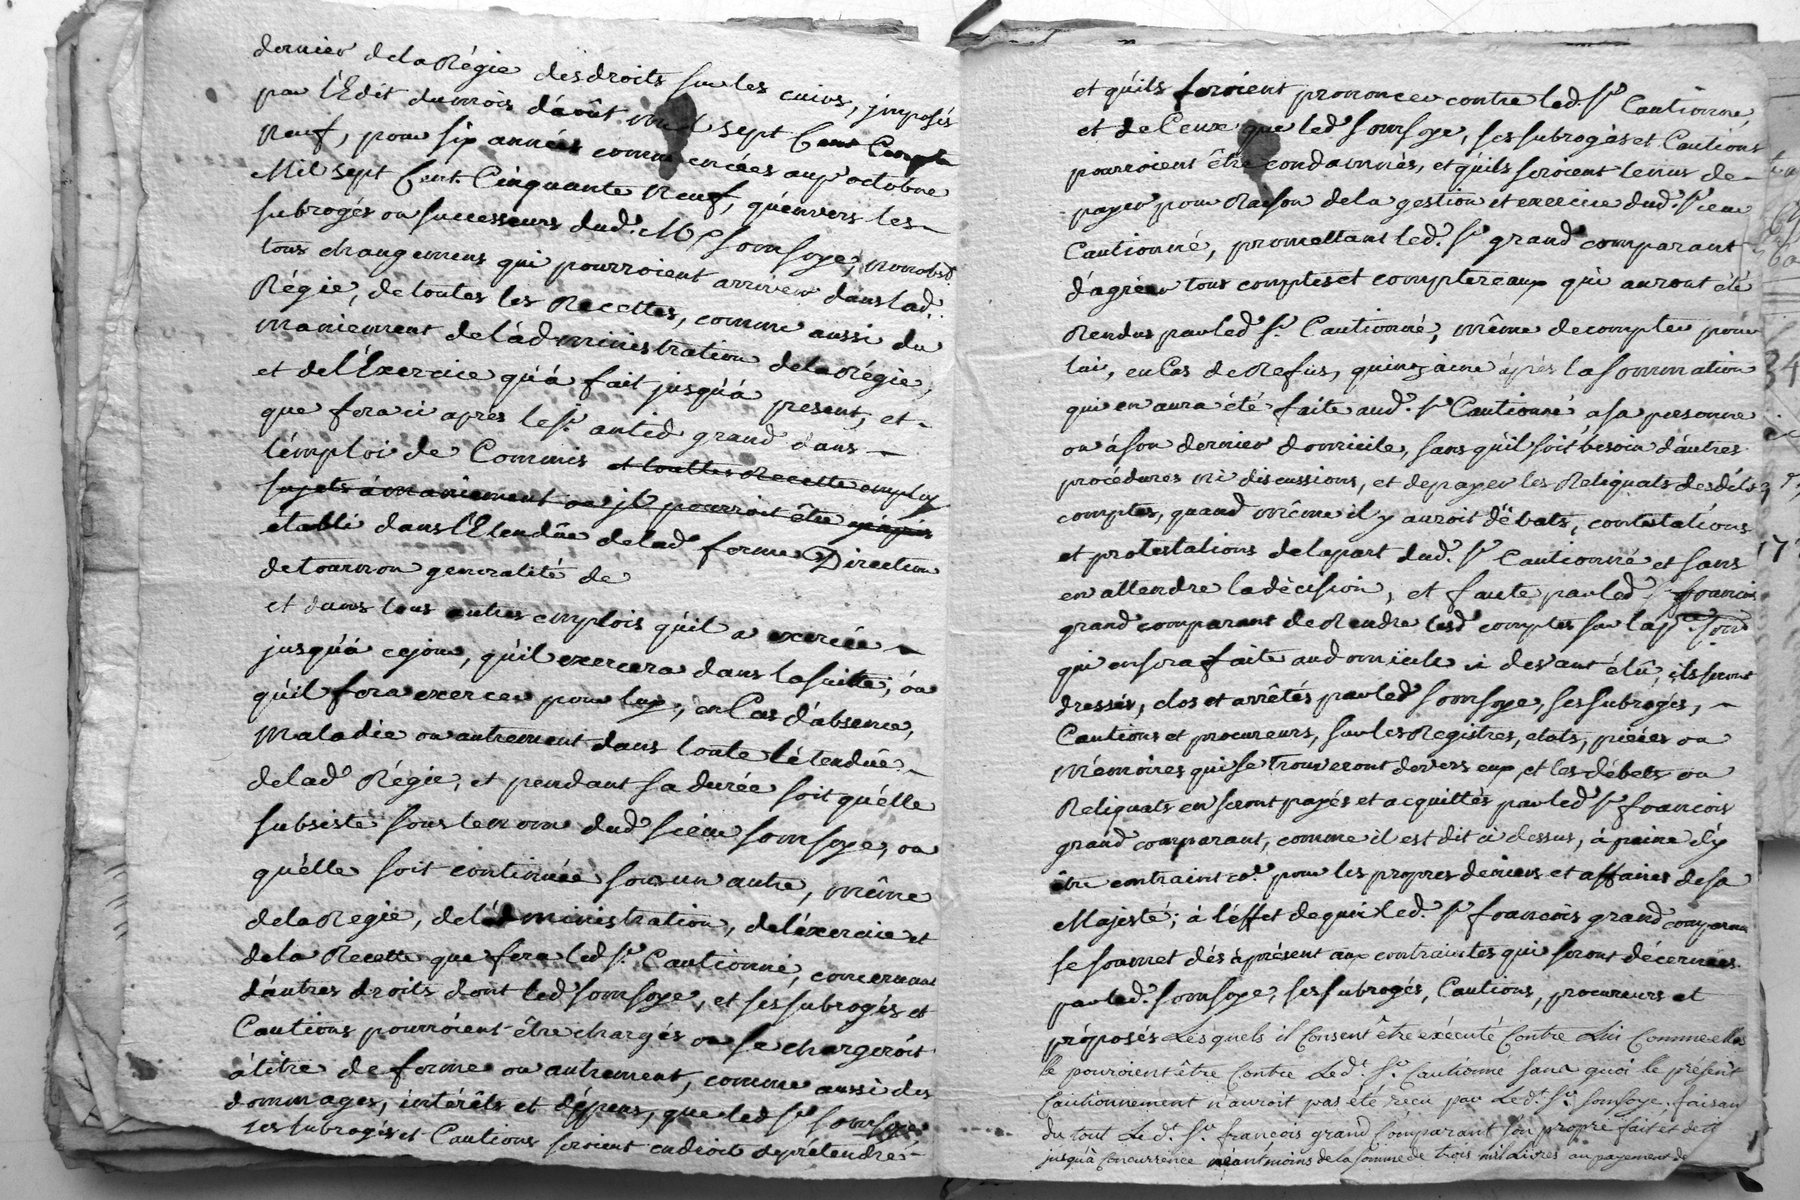 dernier de la Régie des droits sur les cuirs, jmposés
par l'Edit du mois d'août mil sept Cent Cinqte
Neuf, pour six années commencées au per octobre
Mil sept Cent Cinquante Neuf, qu'envers les
subrogés ou successeurs dud. Me Somsoye, nonobst
tous changemens qui pourroient arriver dans lad.
Régie, de toutes les Recettes, comme aussi du
maniement de l'administration de la Régie,
et de l'Exercice qu'a fait jusqu'à present, et
que fera ci après le Sr. antid grand dans
l'émploi de Commis et touttes Recette employ
sujets à maniement ou jl pourroit être
établi dans l'Etendüe de lad ferme Direction
de tournon generalité de
et dans tous autres emplois qu'il a exercée
jusqu'à ce jour, qu'il exercera dans la suitte, ou
qu'il fera exercer pour luy, en Cas d'absence,
Maladie ou autrement dans toute l'étendüe
de lad Régie, et pendant sa durée soit qu'elle
subsiste sous le nom dud sieur Somsoye, ou
qu'elle soit continuée sous un autre, même
de la Regie, de l'administration, de l'éxercice et
de la Recette que fera led Sr. Cautionné, concernant
d'autres droits dont led Somsoye, et ses subrogés et
Cautions pourroient être chargés ou se chargeroit
à titre de ferme ou autrement, comme aussi des
dommages, intérêts et dépens, que led Sr Somsoye
ses subrogés et Cautions seroient en droit de prétendre
et qu'ils feroient prononcer contre led. Sr Cautionné,
et de Ceux que led Somsoye, ses subrogés et Cautions
pourroient être condamnés, et qu'ils seroient tenus de
payer pour Raison de la gestion et exercice dud. Sieur
Cautionné, promettant led. Sr grand comparant
d'agréer tous comptes et comptereaux qui auront été
Rendus par led Sr. Cautionné, même de compter pour
lui, en Cas de Refus, quinzaine après la sommation
qui en aura été faite aud. Sr Cautionné, a sa personne
ou à son dernier domicile, sans qu'il soit besoin d'autres
procédures ni discussions, et de payer les Reliquats desdits
comptes, quand même il y auroit débats, contestations
et protestations de la part dud. Sr Cautionné et sans
en attendre la décision, et faute par led Sr francois
grand comparant de Rendre lesd comptes sur la pre Som
qui en sera faite au domicile ci devant élû, ils seront
dressés, clos et arrêtés par led Somsoye, ses subrogés,
Cautions et procureurs, sur les Registres, etats, pièces ou
Mémoires qui se trouveront devers eux, et les débets ou
Reliquats en seront payés et acquittés par led Sr francois
grand comparant, comme il est dit ci dessus, à peine d'y
être contraint co. pour les propres deniers et affaires de sa
Majesté; à l'éffet de quoi led. Sr francois grand comparan
se soumet dés à présent aux contraintes qui seront décernées
par led. Somsoye, ses subrogés, Cautions, procureurs et
préposés Lésquels il Consent être exécuté Contre Lui Comme elles
le pouroient être Contre Ledt. Sr. Cautionné sans quoi le présent
Cautionnement n'auroit pas été reçu par Ledt. Sr. Somsoye. faisan
du tout Ledt. Sr. françois grand Comparant son propre fait et dette
jusqu'à Concurrence néantmoins de la somme de trois mil Livres au payement de